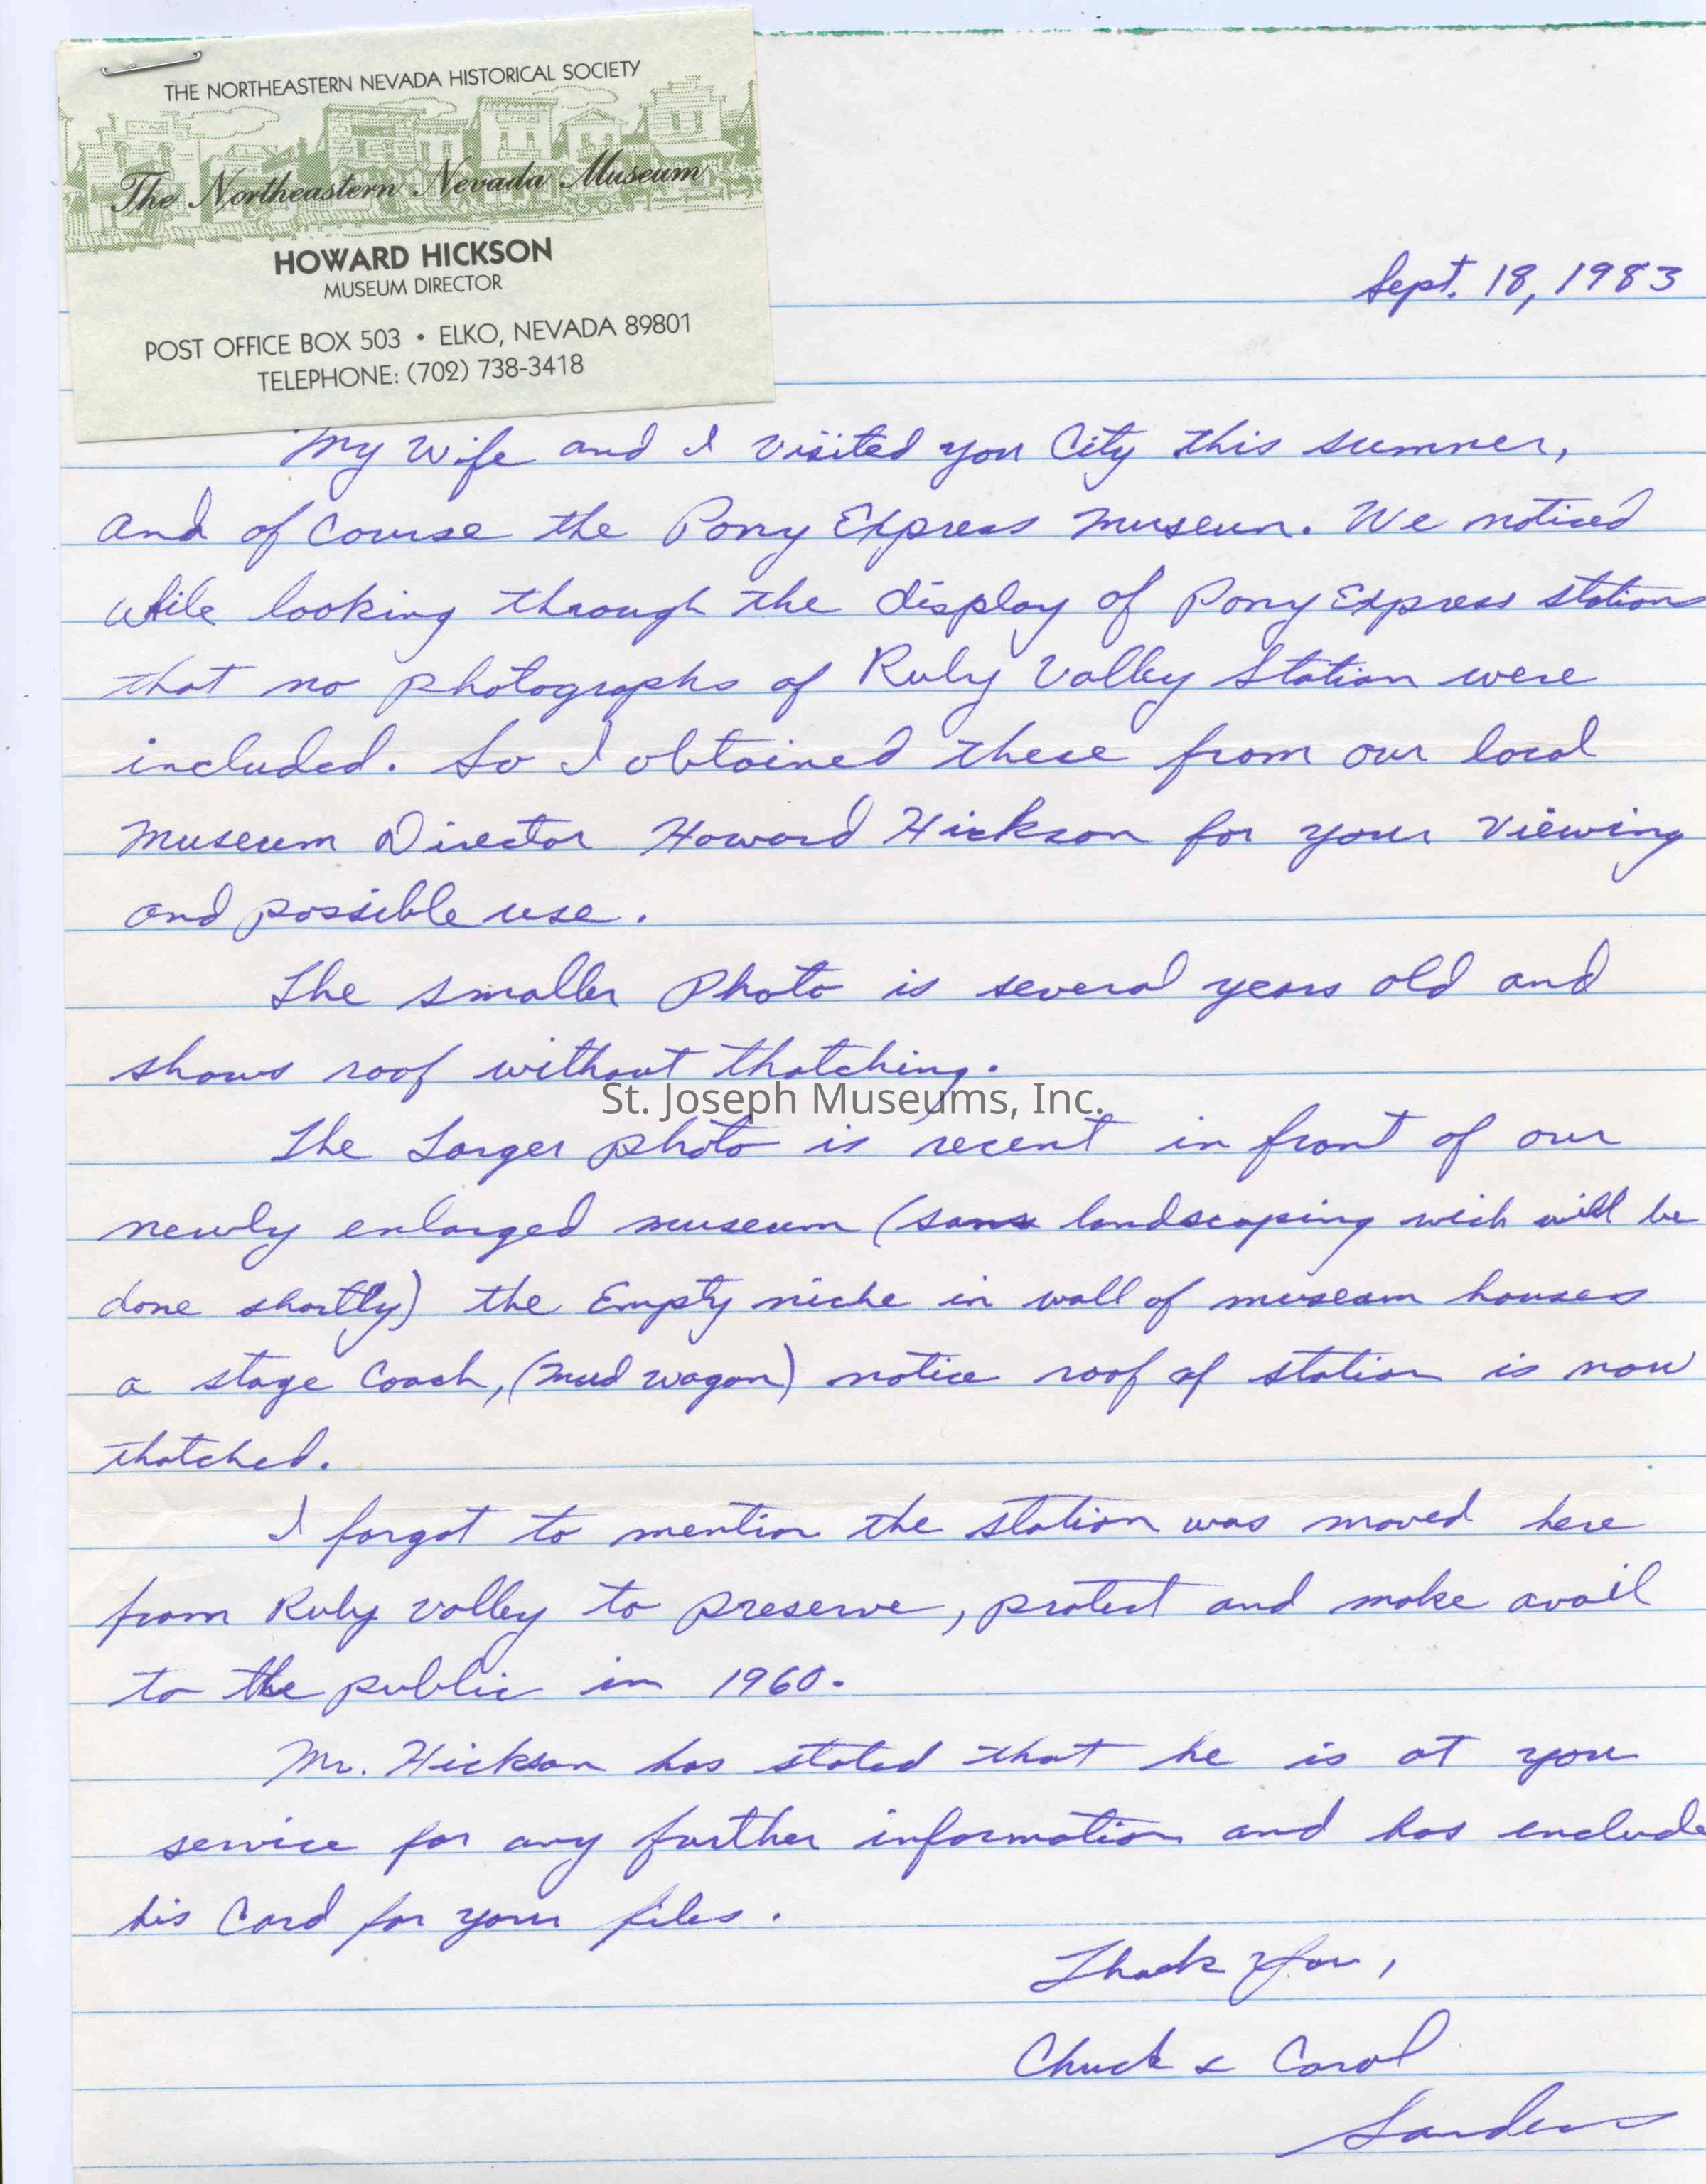 THE NORTHEASTERN NEVADA HISTORICAL SOCIETY
The Northeastern Nevada Museum
HOWARD HICKSON
MUSEUM DIRECTOR
POST OFFICE BOX 503 • ELKO, NEVADA 89801
TELEPHONE: (702) 738-3418
Sept. 18, 1983
My Wife and I visited your City this summer,
and of course the Pony Express Museum. We noticed
while looking through the display of Pony Express stations
that no photographs of Ruby Valley Station were
included. So I obtained these from our local
Museum Director Howard Hickson for your viewing
and possible use.
The smaller Photo is several years old and
shows roof without thatching.
St. Joseph Museums, Inc.
The Larger photo is recent in front of our
newly enlarged museum (sans landscaping wich will be
done shortly) the Empty niche in wall of museum houses
a stage Coach, (mud wagon) notice roof of station is now
thatched.
I forgot to mention the station was moved here
from Ruby Valley to preserve, protect and make avail
to the public in 1960.
Mr. Hickson has stated that he is at your
service for any further information and has include
his Card for your files.
Thank You,
Chuck & Carol
Sanders